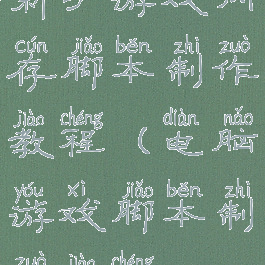 cún jiǎo běn zhì zuò
存脚本制作
jiào chéng diàn nǎo
教程（电脑
yóu xì jiǎo běn zhì
游戏脚本制
zuò jiào chéng